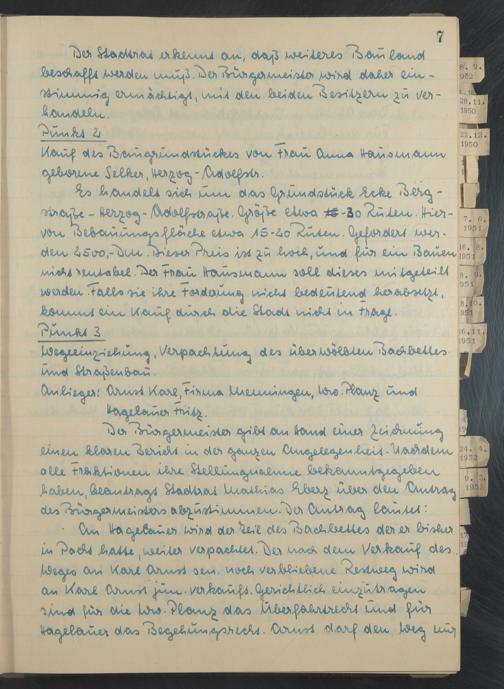 7
Der Stadtrat erkennt an, daß weiteres Bauland
beschafft werden muß. Der Bürgermeister wird daher ein-
stimmig ermächtigt, mit den beiden Besitzern zu ver-
handeln.
Punkt 2
Kauf des Baugrundstückes von Frau Anna Hausmann
geborene Selker, Herzog-Adolfstr.
Es handelt sich um das Grundstück Ecke Berg-
straße - Herzog-Adolfstraße. Größe etwa 30 Ruten. Hier-
von Bebauungsfläche etwa 15-20 Ruten. Gefordert wer-
den 2500,- DM. Dieser Preis ist zu hoch, und für ein Bauen
nicht rentabel. Der Frau Hausmann soll dieses mitgeteilt
werden. Falls sie ihre Forderung nicht bedeutend herabsetzt,
kommt ein Kauf durch die Stadt nicht in Frage.
Punkt 3
Wegeeinziehung, Verpachtung des überwölbten Bachbettes
und Straßenbau.
Anlieger: Arnst Karl, Firma Menningen, Wro. Planz und
Hagelauer Fritz.
Der Bürgermeister gibt an Hand einer Zeichnung
einen klaren Bericht in der ganzen Angelegenheit. Nachdem
alle Fraktionen ihre Stellungnahme bekanntgegeben
haben, beantragt Stadtrat Mathias Eberz über den Antrag
des Bürgermeisters abzustimmen. Der Antrag lautet:
An Hagelauer wird der Teil des Bachbettes der er bisher
in Pacht hatte, weiter verpachtet. Der nach dem Verkauf des
Weges an Karl Arnst sen. noch verbliebene Restweg wird
an Karl Arnst jun. verkauft. Gerichtlich einzutragen
sind für die Wro. Planz das Überfahrtsrecht und für
Hagelauer das Begehungsrecht. Arnst darf den Weg nur
8. 9.
1952
28.11.
1950
22.12.
1950
7. 6.
1951
16. 8.
1951
8. 9.
1951
8.10.
1951
16.11.
1951
24. 4.
1952
9. 5.
1952